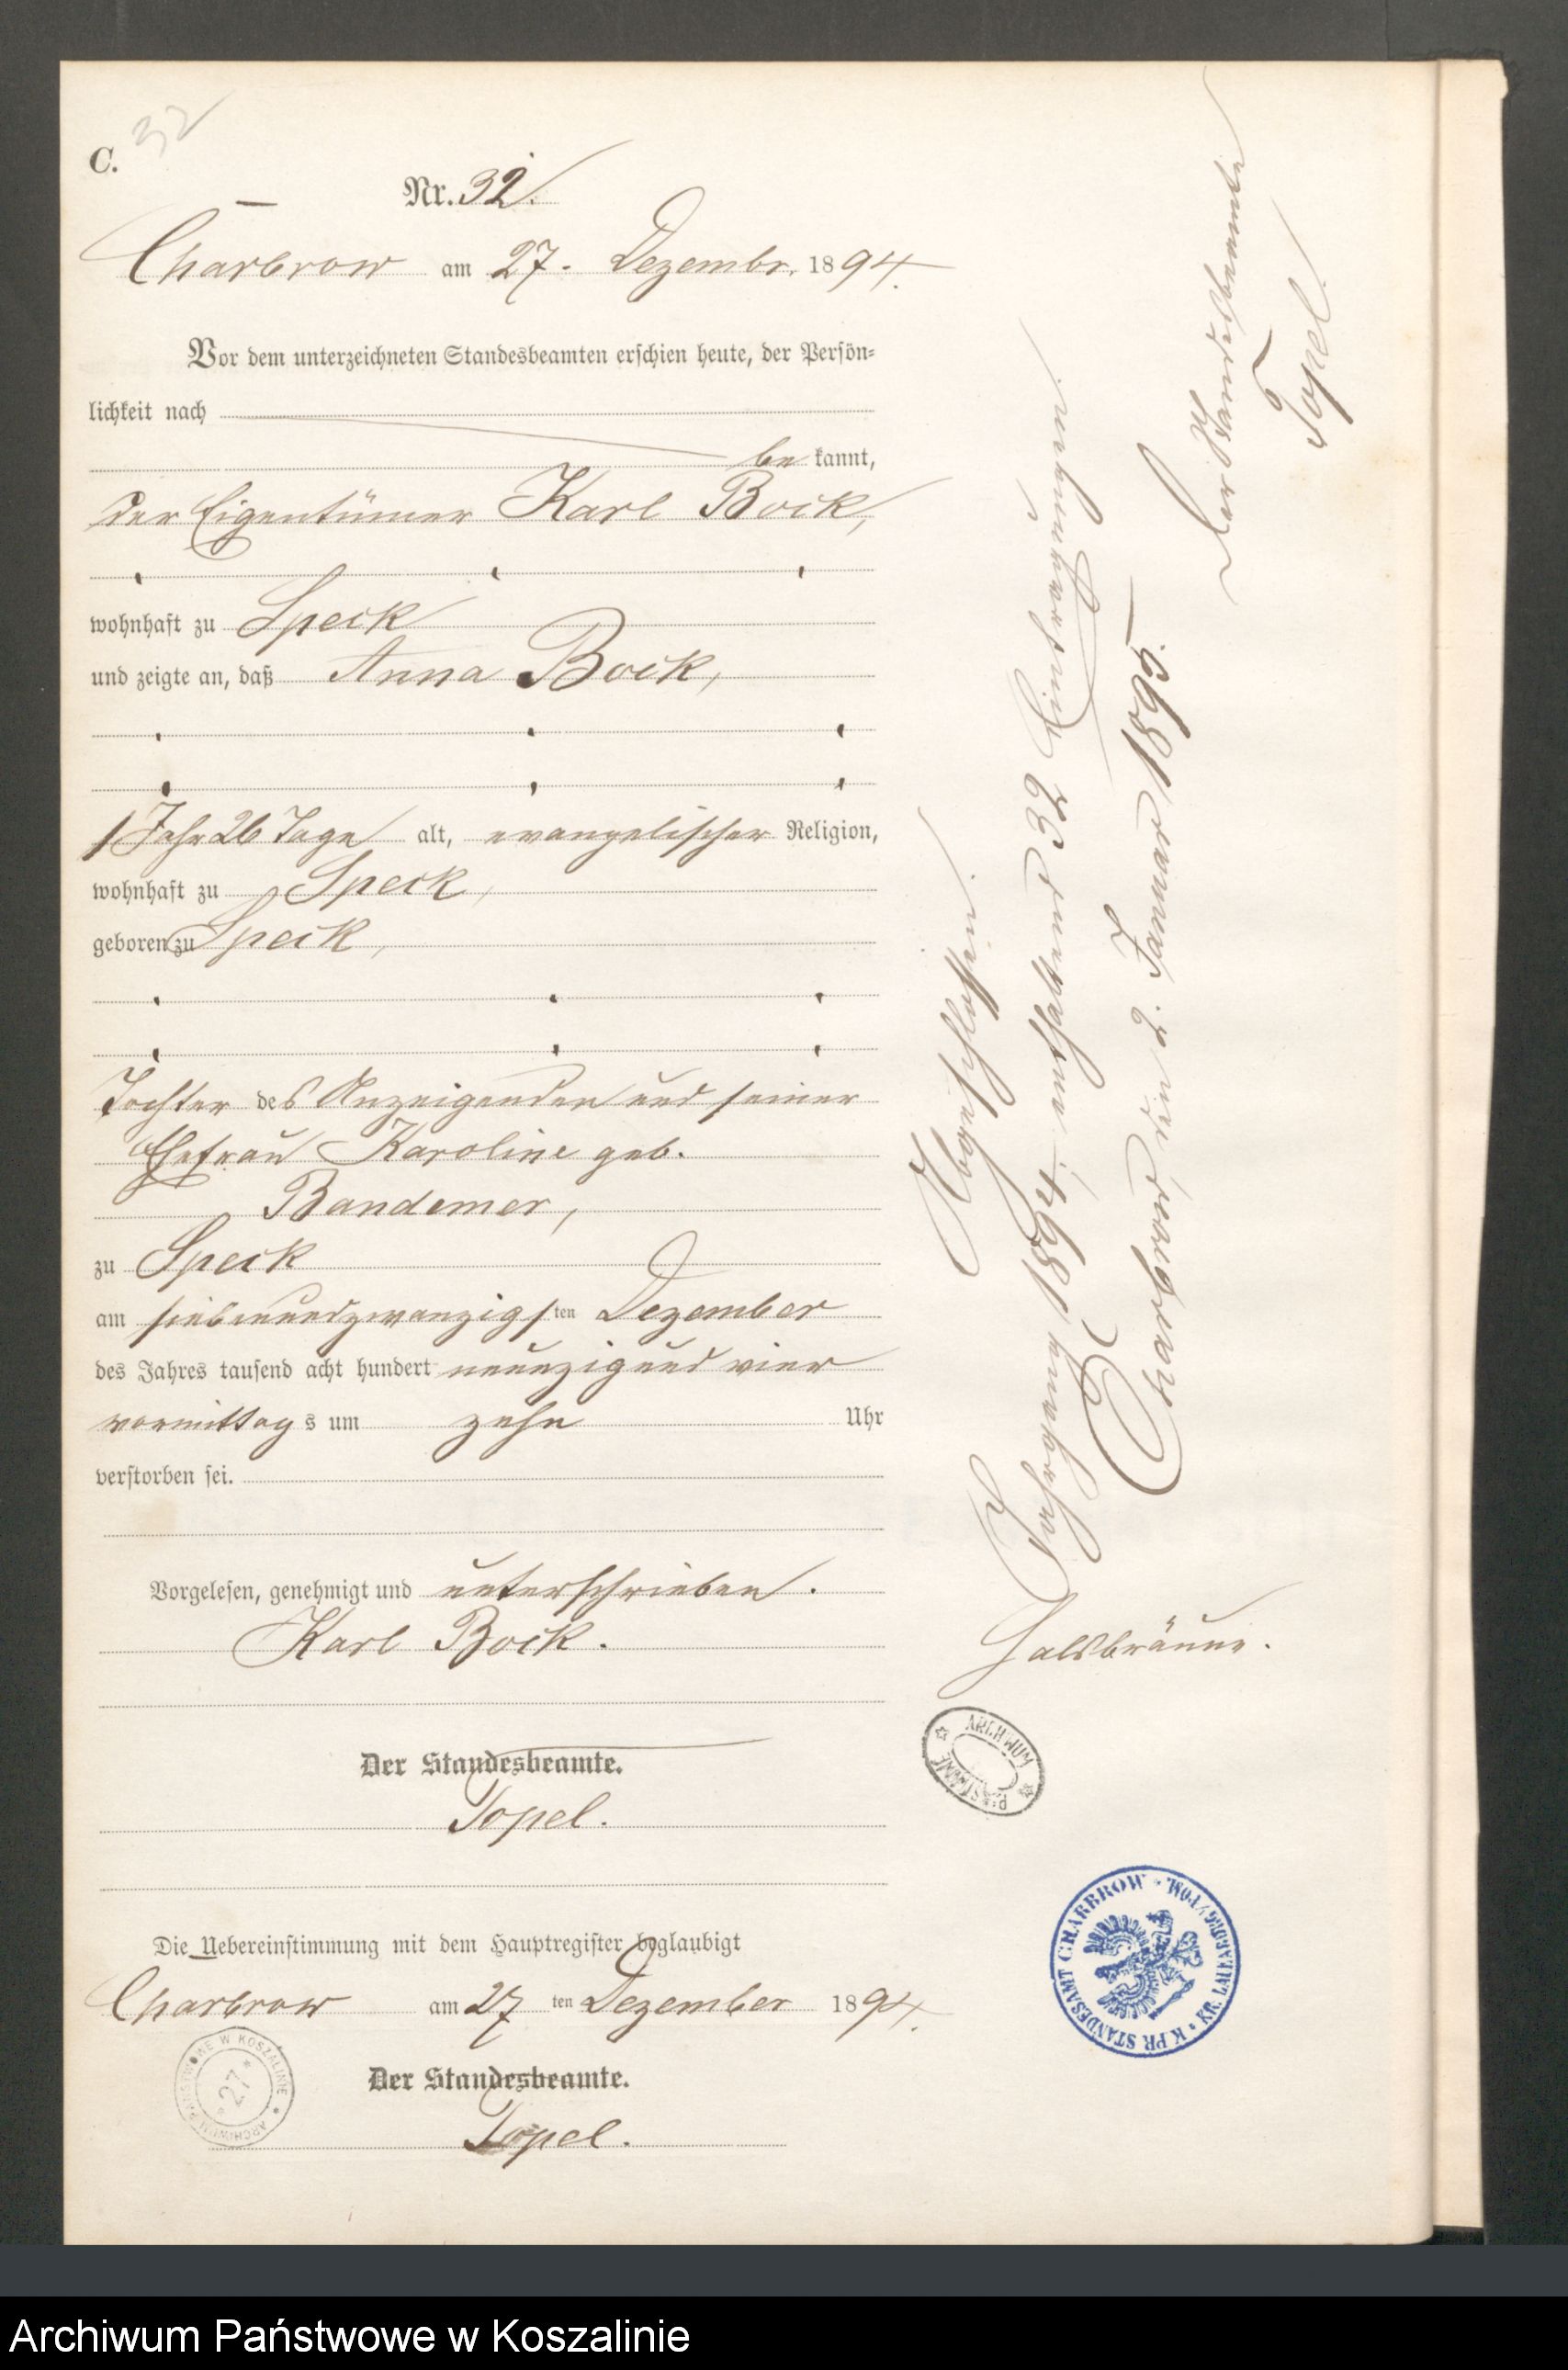 C. 32
Nr. 32.
Charbrow am 27. Dezembr. 1894.
Vor dem unterzeichneten Standesbeamten erschien heute, der Persön-
lichkeit nach
be kannt,
der Eigentümer Karl Bock,
wohnhaft zu Speck
und zeigte an, daß Anna Bock,
1 Jahr 26 Tage alt, evangelischer Religion,
wohnhaft zu Speck,
geboren zu Speck,
Tochter des Anzeigenden und seiner
Ehefrau Karoline geb.
Bandemer,
zu Speck
am siebenundzwanzigsten Dezember
des Jahres tausend acht hundert neunzig und vier
vormittags um zehn Uhr
verstorben sei.
Vorgelesen, genehmigt und unterschrieben.
Karl Bock.
Der Standesbeamte.
Topel.
Die Uebereinstimmung mit dem Hauptregister beglaubigt
Charbrow am 27 ten Dezember 1894.
Der Standesbeamte.
Topel.
Abgeschlossen.
Jahrgang 1894, enthaltend 32 Eintragungen.
Charbrow, den 2. Januar 1895.
Der Standesbeamte
Topel.
Halsbräune.
ARCHIWUM
K PR STANDESAMT CHARBROW KR. LAUENBURG I/POM.
ARCHIWUM PAŃSTWOWE W KOSZALINIE
27
Archiwum Państwowe w Koszalinie